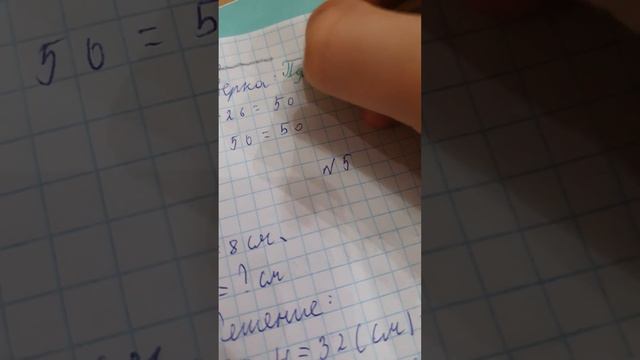 50 = 5
ерка: Пр
26 = 50
50 = 50
№5
= 8 см.
= ? см
ешение:
4 = 32 (см)